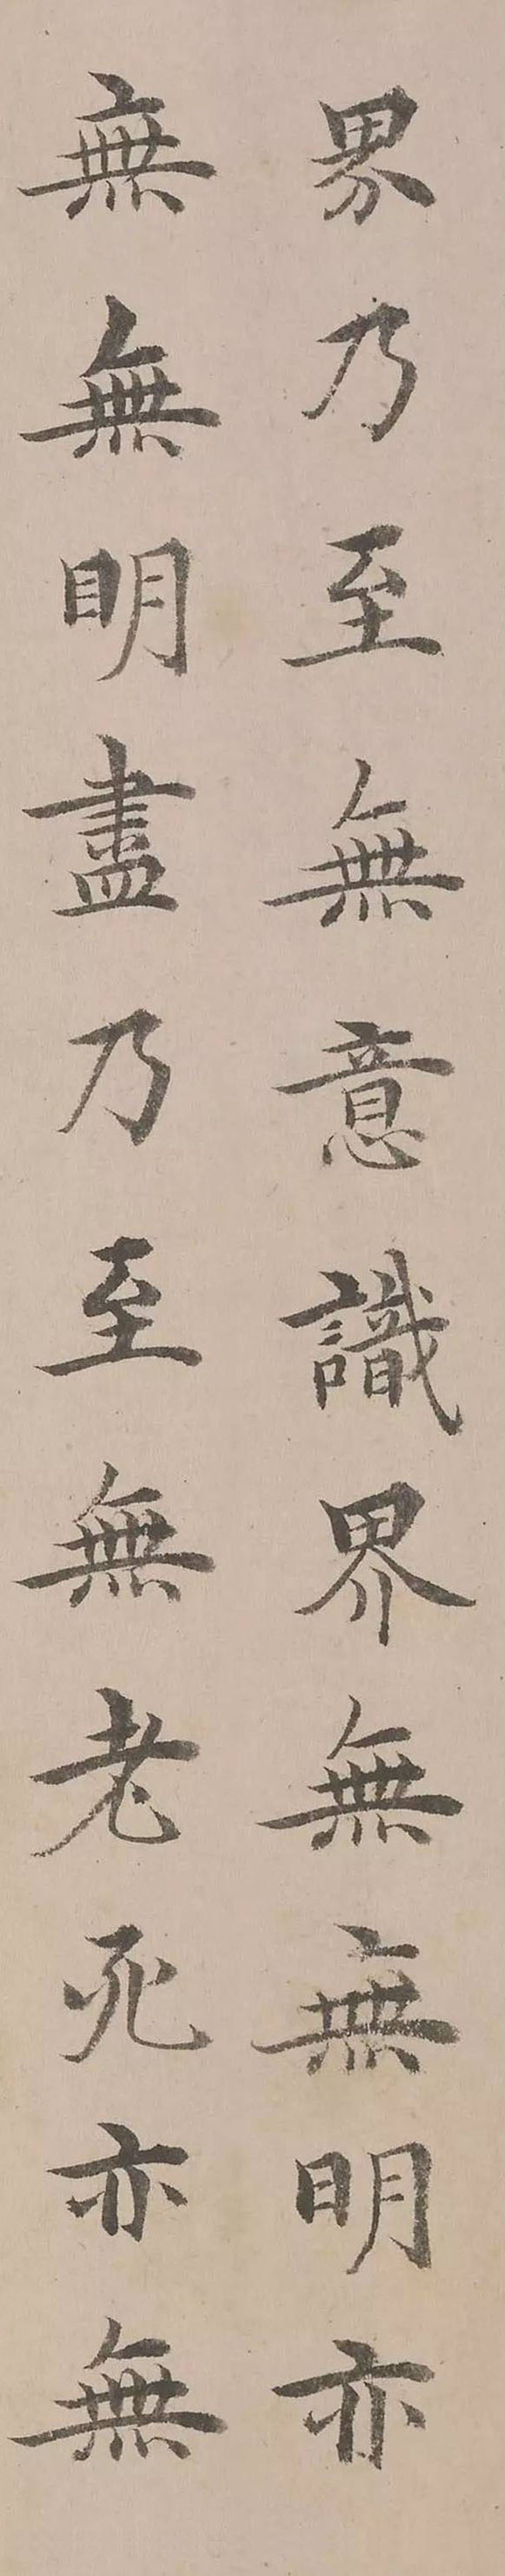 界乃至無意識界無無明亦
無無明盡乃至無老死亦無